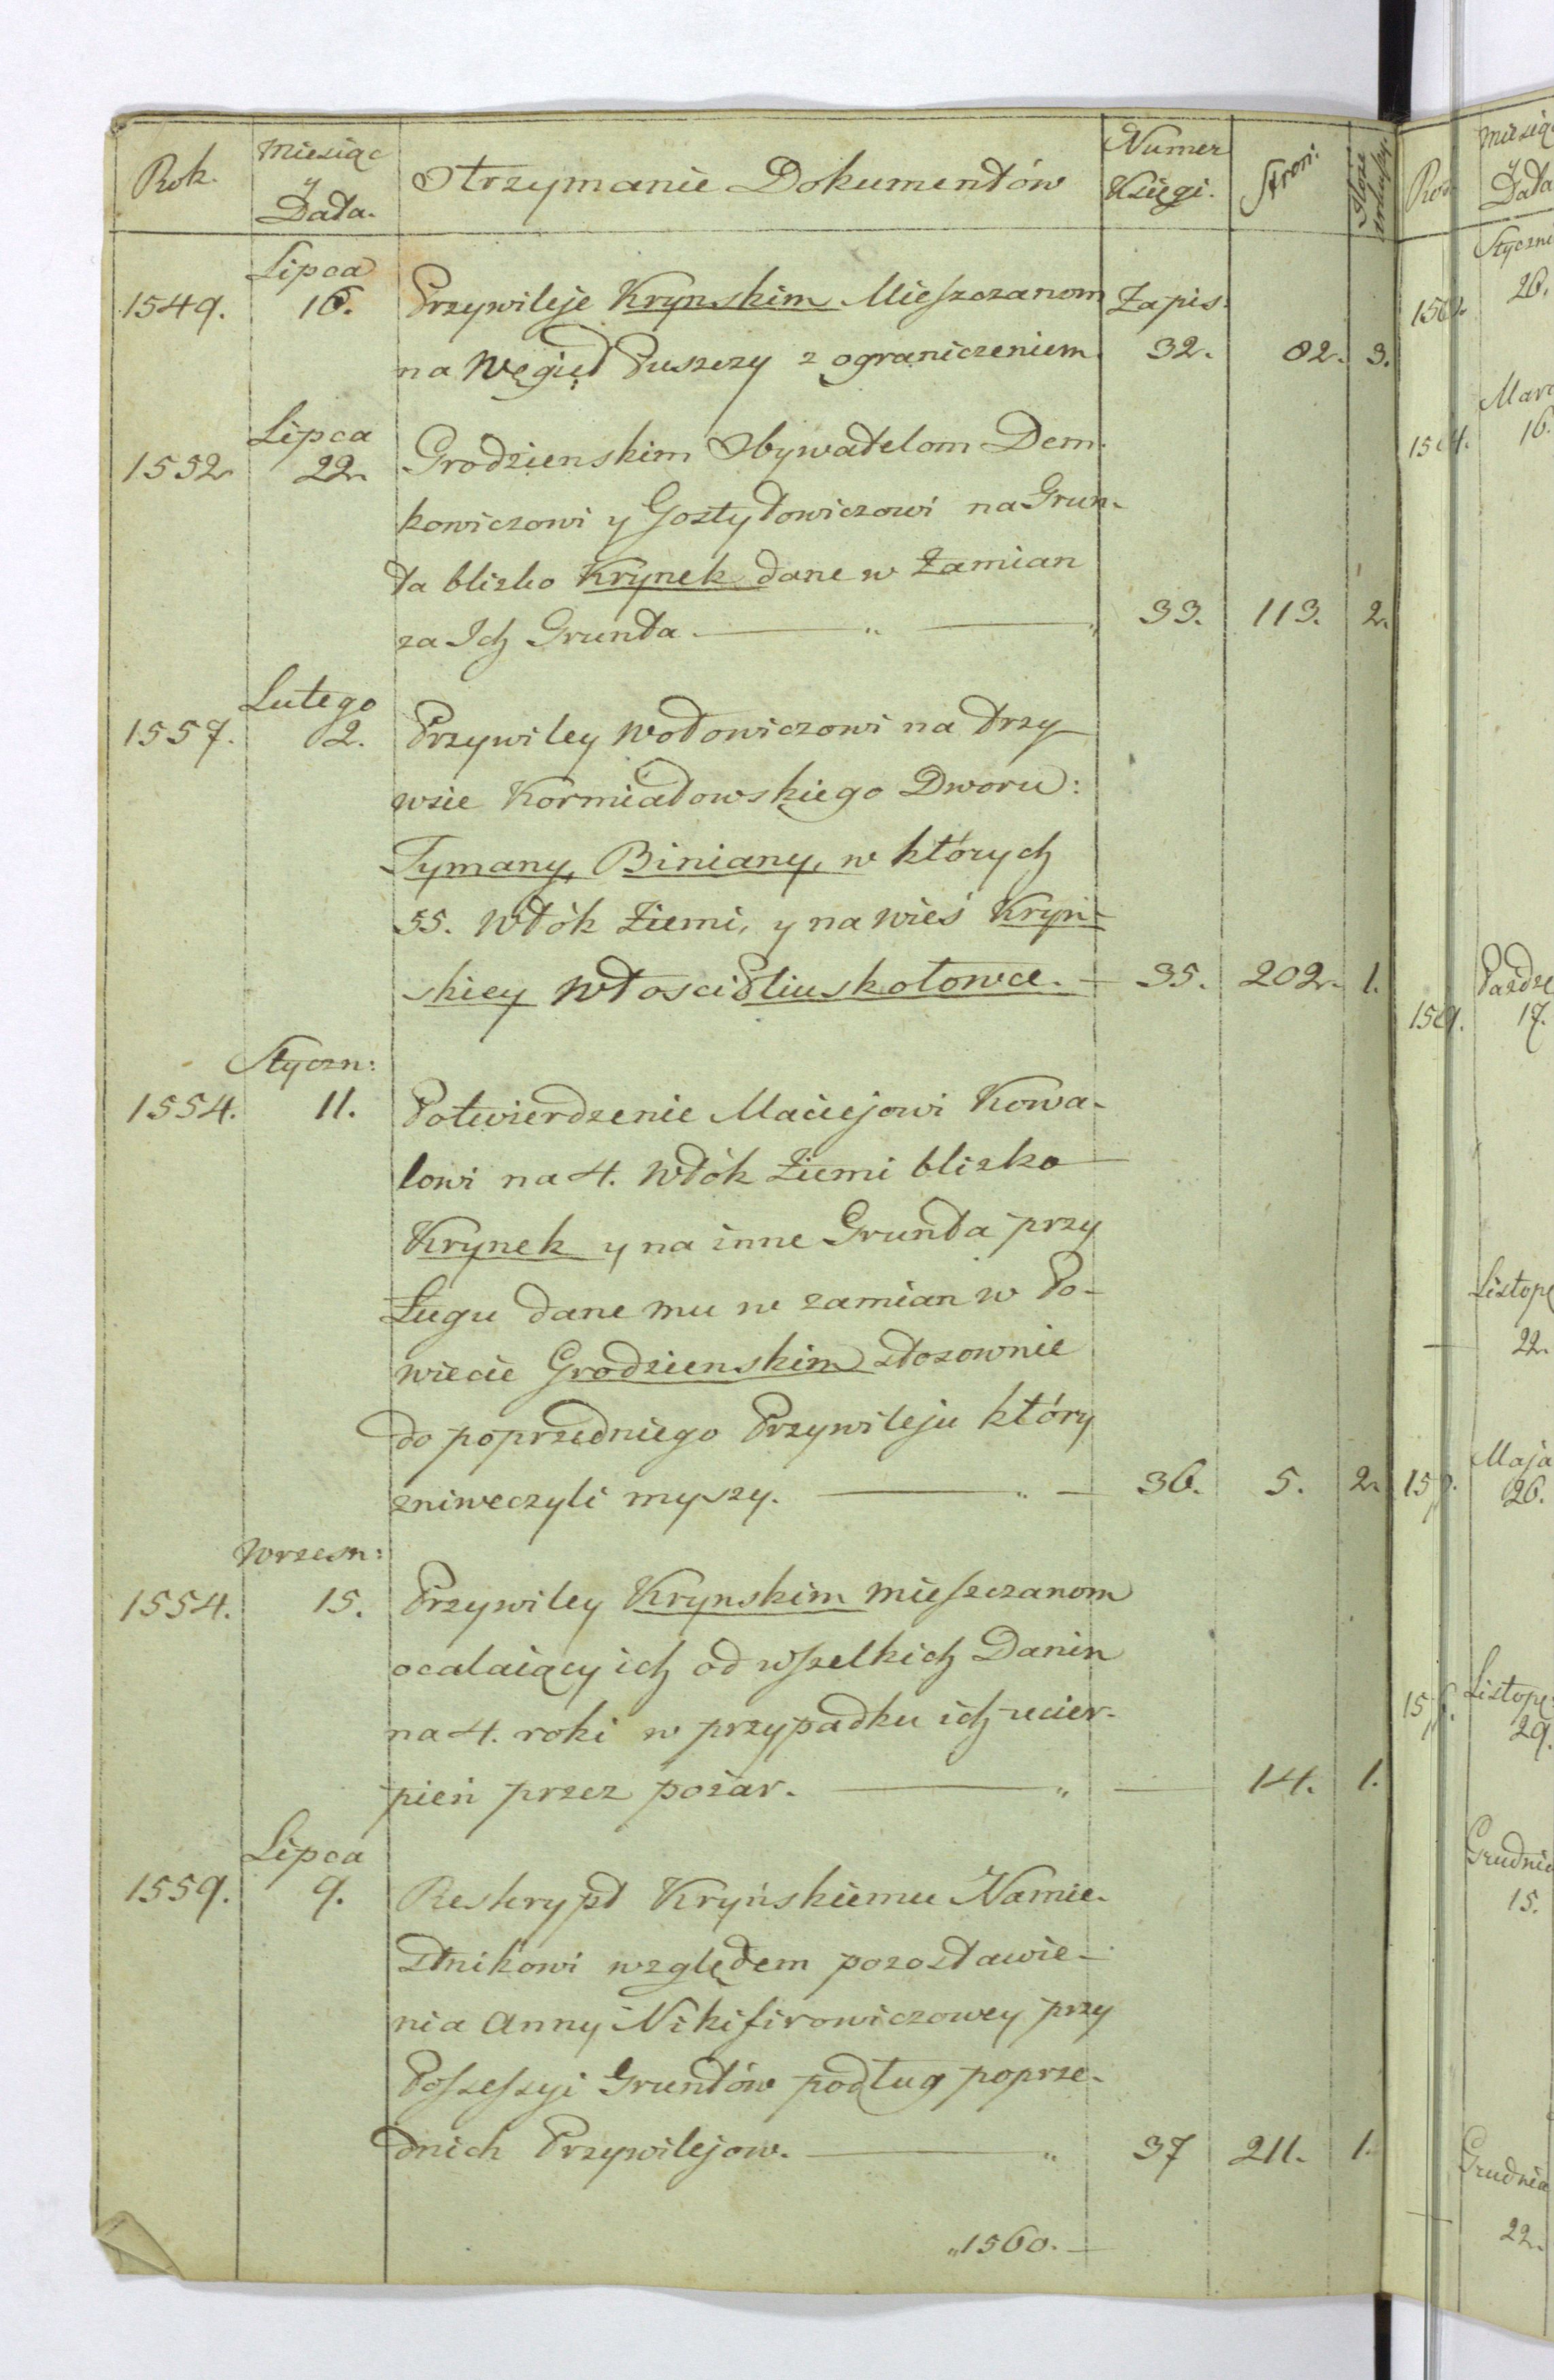 Rok. Miesiąc y Data. Otrzymanie Dokumentów Numer Księgi. Stron:
Lipca
1549. 16. Przywileje Krynskim Mieszczanom Zapis:
na Węgieł Puszczy z ograniczeniem. 32. 82. 3.
Lipca
1552. 22. Grodzienskim Obywatelom Dem-
kowiczowi y Gostyłowiczowi na Grun-
ta blisko Krynek dane w Zamian
za Ich Grunta. 33. 113. 2.
Lutego
1557. 2. Przywiley Wołowiczowi na trzy
wsie Kormiałowskiego Dworu:
Tymany, Biniany, w których
55. Włók Ziemi, y na wieś Kryń-
skiey Włosci Pliuskołowce. 35. 202. 1.
Styczn:
1554. 11. Potwierdzenie Maciejowi Kowa-
lowi na 4. Włók Ziemi blisko
Krynek y na inne Grunta przy
Ługu dane mu w zamian w Po-
wiecie Grodzienskim stosownie
do poprzedniego Przywileju który
zniweczyli myszy. 36. 5. 2.
Wrzesn:
1554. 15. Przywiley Krynskim mieszczanom
ocalaiący ich od wszelkich Danin
na 4. roki w przypadku ich ucier-
pień przez pożar. 14. 1.
Lipca
1559. 9. Reskrypt Kryńskiemu Namie-
stnikowi względem pozostawie-
nia Anny Nikifirowiczowey przy
Possessyi Gruntów podług poprze-
dnich Przywilejow. 37 211. 1.
„1560.
Miesią
y
Data
Styczni
26.
Marc
16.
Paźdz
17.
Listop
22.
Maja
26.
Listop
29.
Grudnia
15.
Grudnia
22.